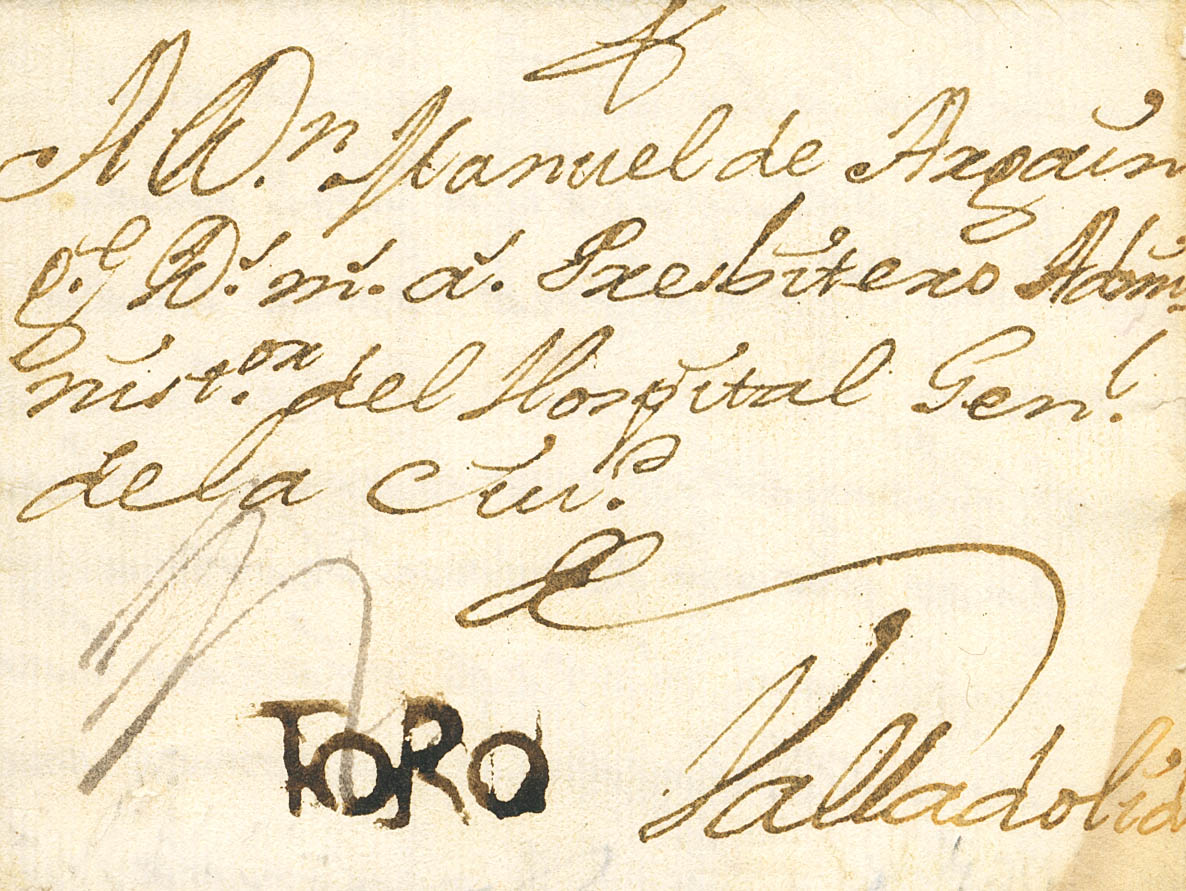 A D.n Manuel de Argain
q.e D.s m.s a.s Presbitero Admi
nist.or del Hospital Gen.l
de la Ciu.d
Valladolid
TORO